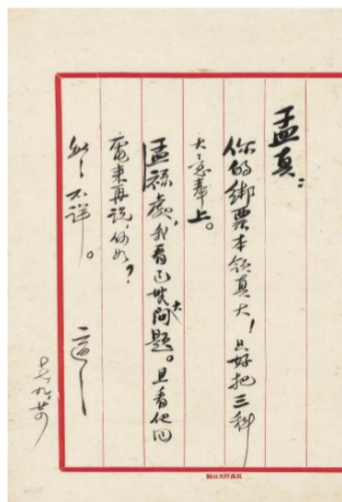 孟真:
你的綁票本領真大!只好把三科
大意奉上。
孟祿處,我看已無大問題。且看他回
電來再說,何如?
匆匆不詳。 適之